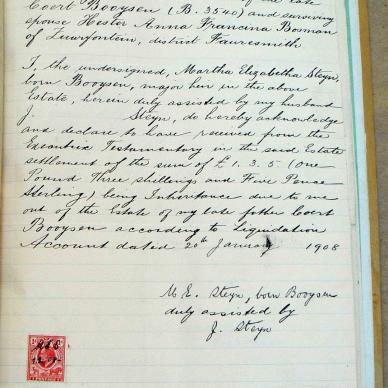 Coert Booysen (B. 3540) and surviving
spouse Hester Anna Francina Bosman
of Zuurfontein, district Fauresmith
I the undersigned, Martha Elizabetha Steyn,
born Booysen, major heir in the above
Estate, herein duly assisted by my husband
J. Steyn, do hereby acknowledge
and declare to have received from the
Executrix Testamentary in the said Estate
settlement of the sum of £1.3.5 (One
Pound Three shillings and Five Pence
Sterling) being Inheritance due to me
out of the Estate of my late father Coert
Booysen according to Liquidation
Account dated 20th January 1908
M. E. Steyn, born Booysen
duly assisted by
J. Steyn